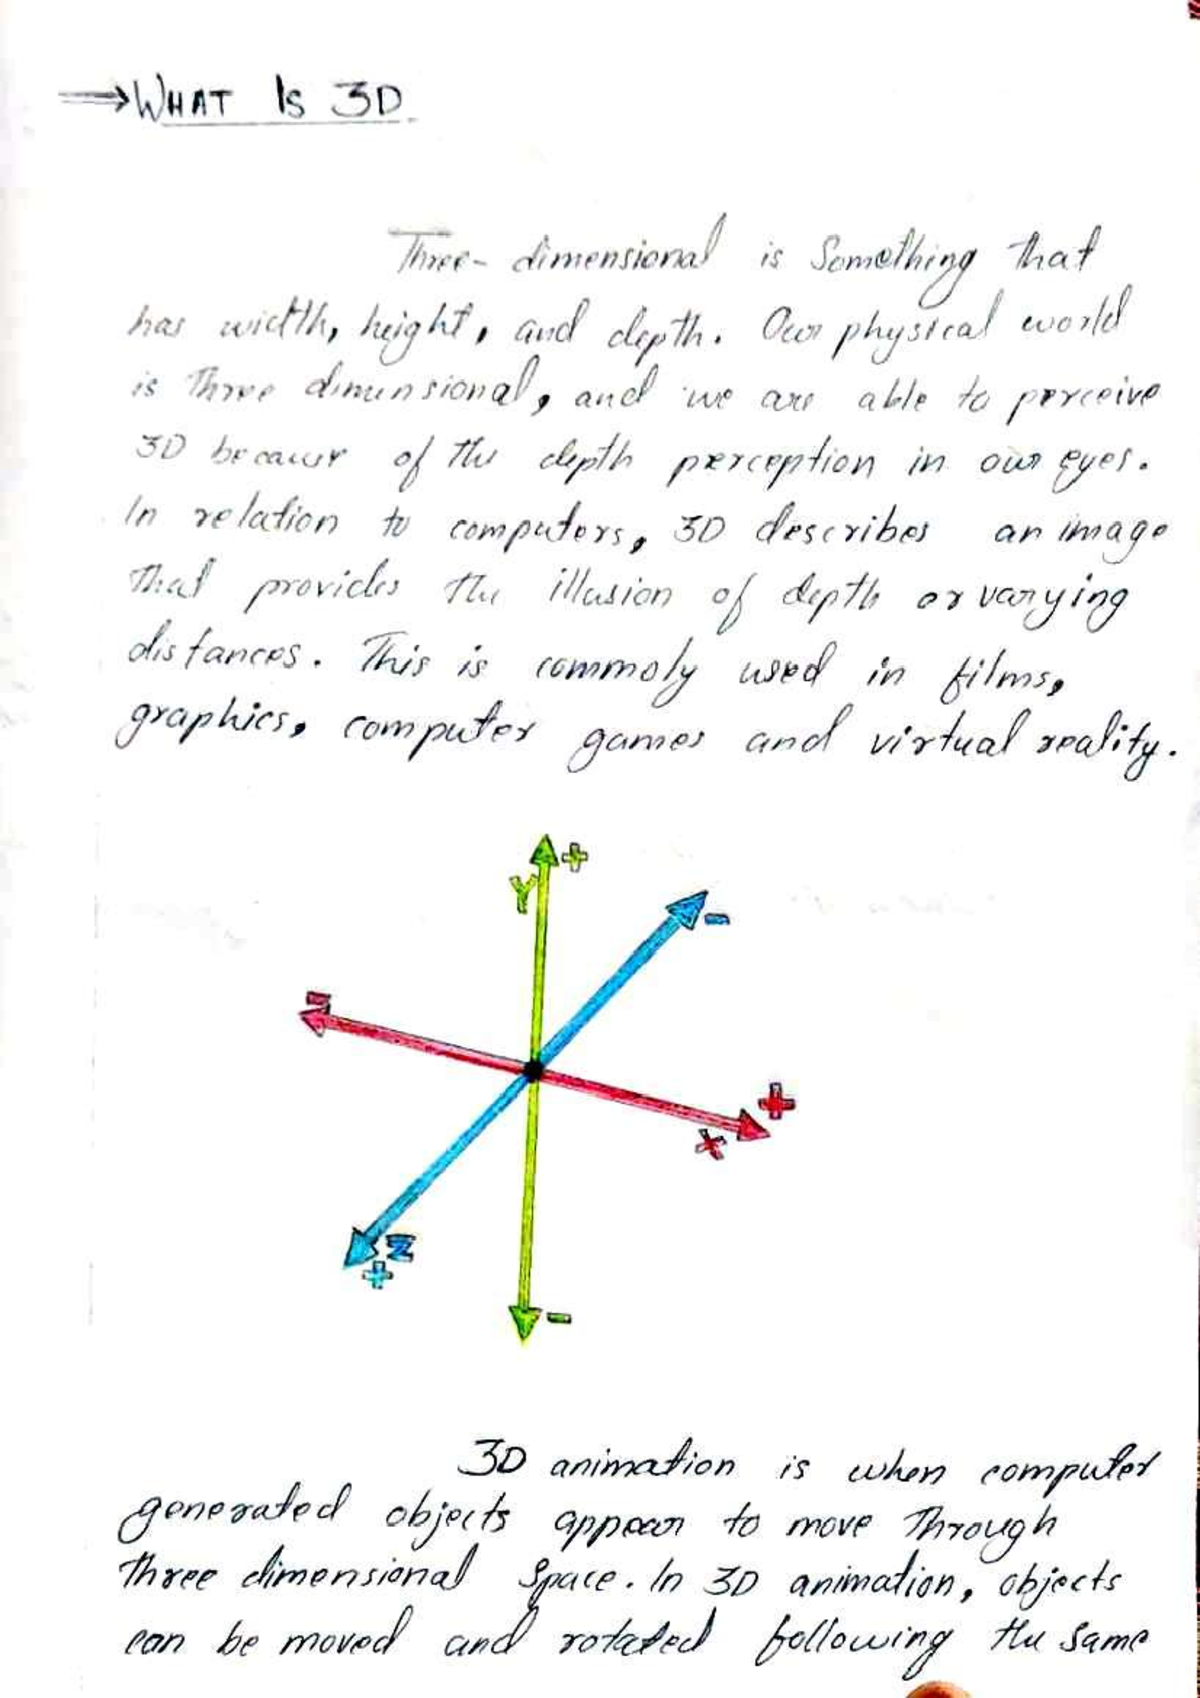 →WHAT IS 3D
Three-dimensional is Something that
has width, height, and depth. Our physical world
is Three dimensional, and we are able to perceive
3D because of the depth perception in our eyes.
In relation to computers, 3D describes an image
that provides the illusion of depth or varying
distances. This is commoly used in films,
graphics, computer games and virtual reality.
+
Y
-
-
+
X
Z
+
-
3D animation is when computer
generated objects appear to move Through
three dimensional Space. In 3D animation, objects
can be moved and rotated following the Same